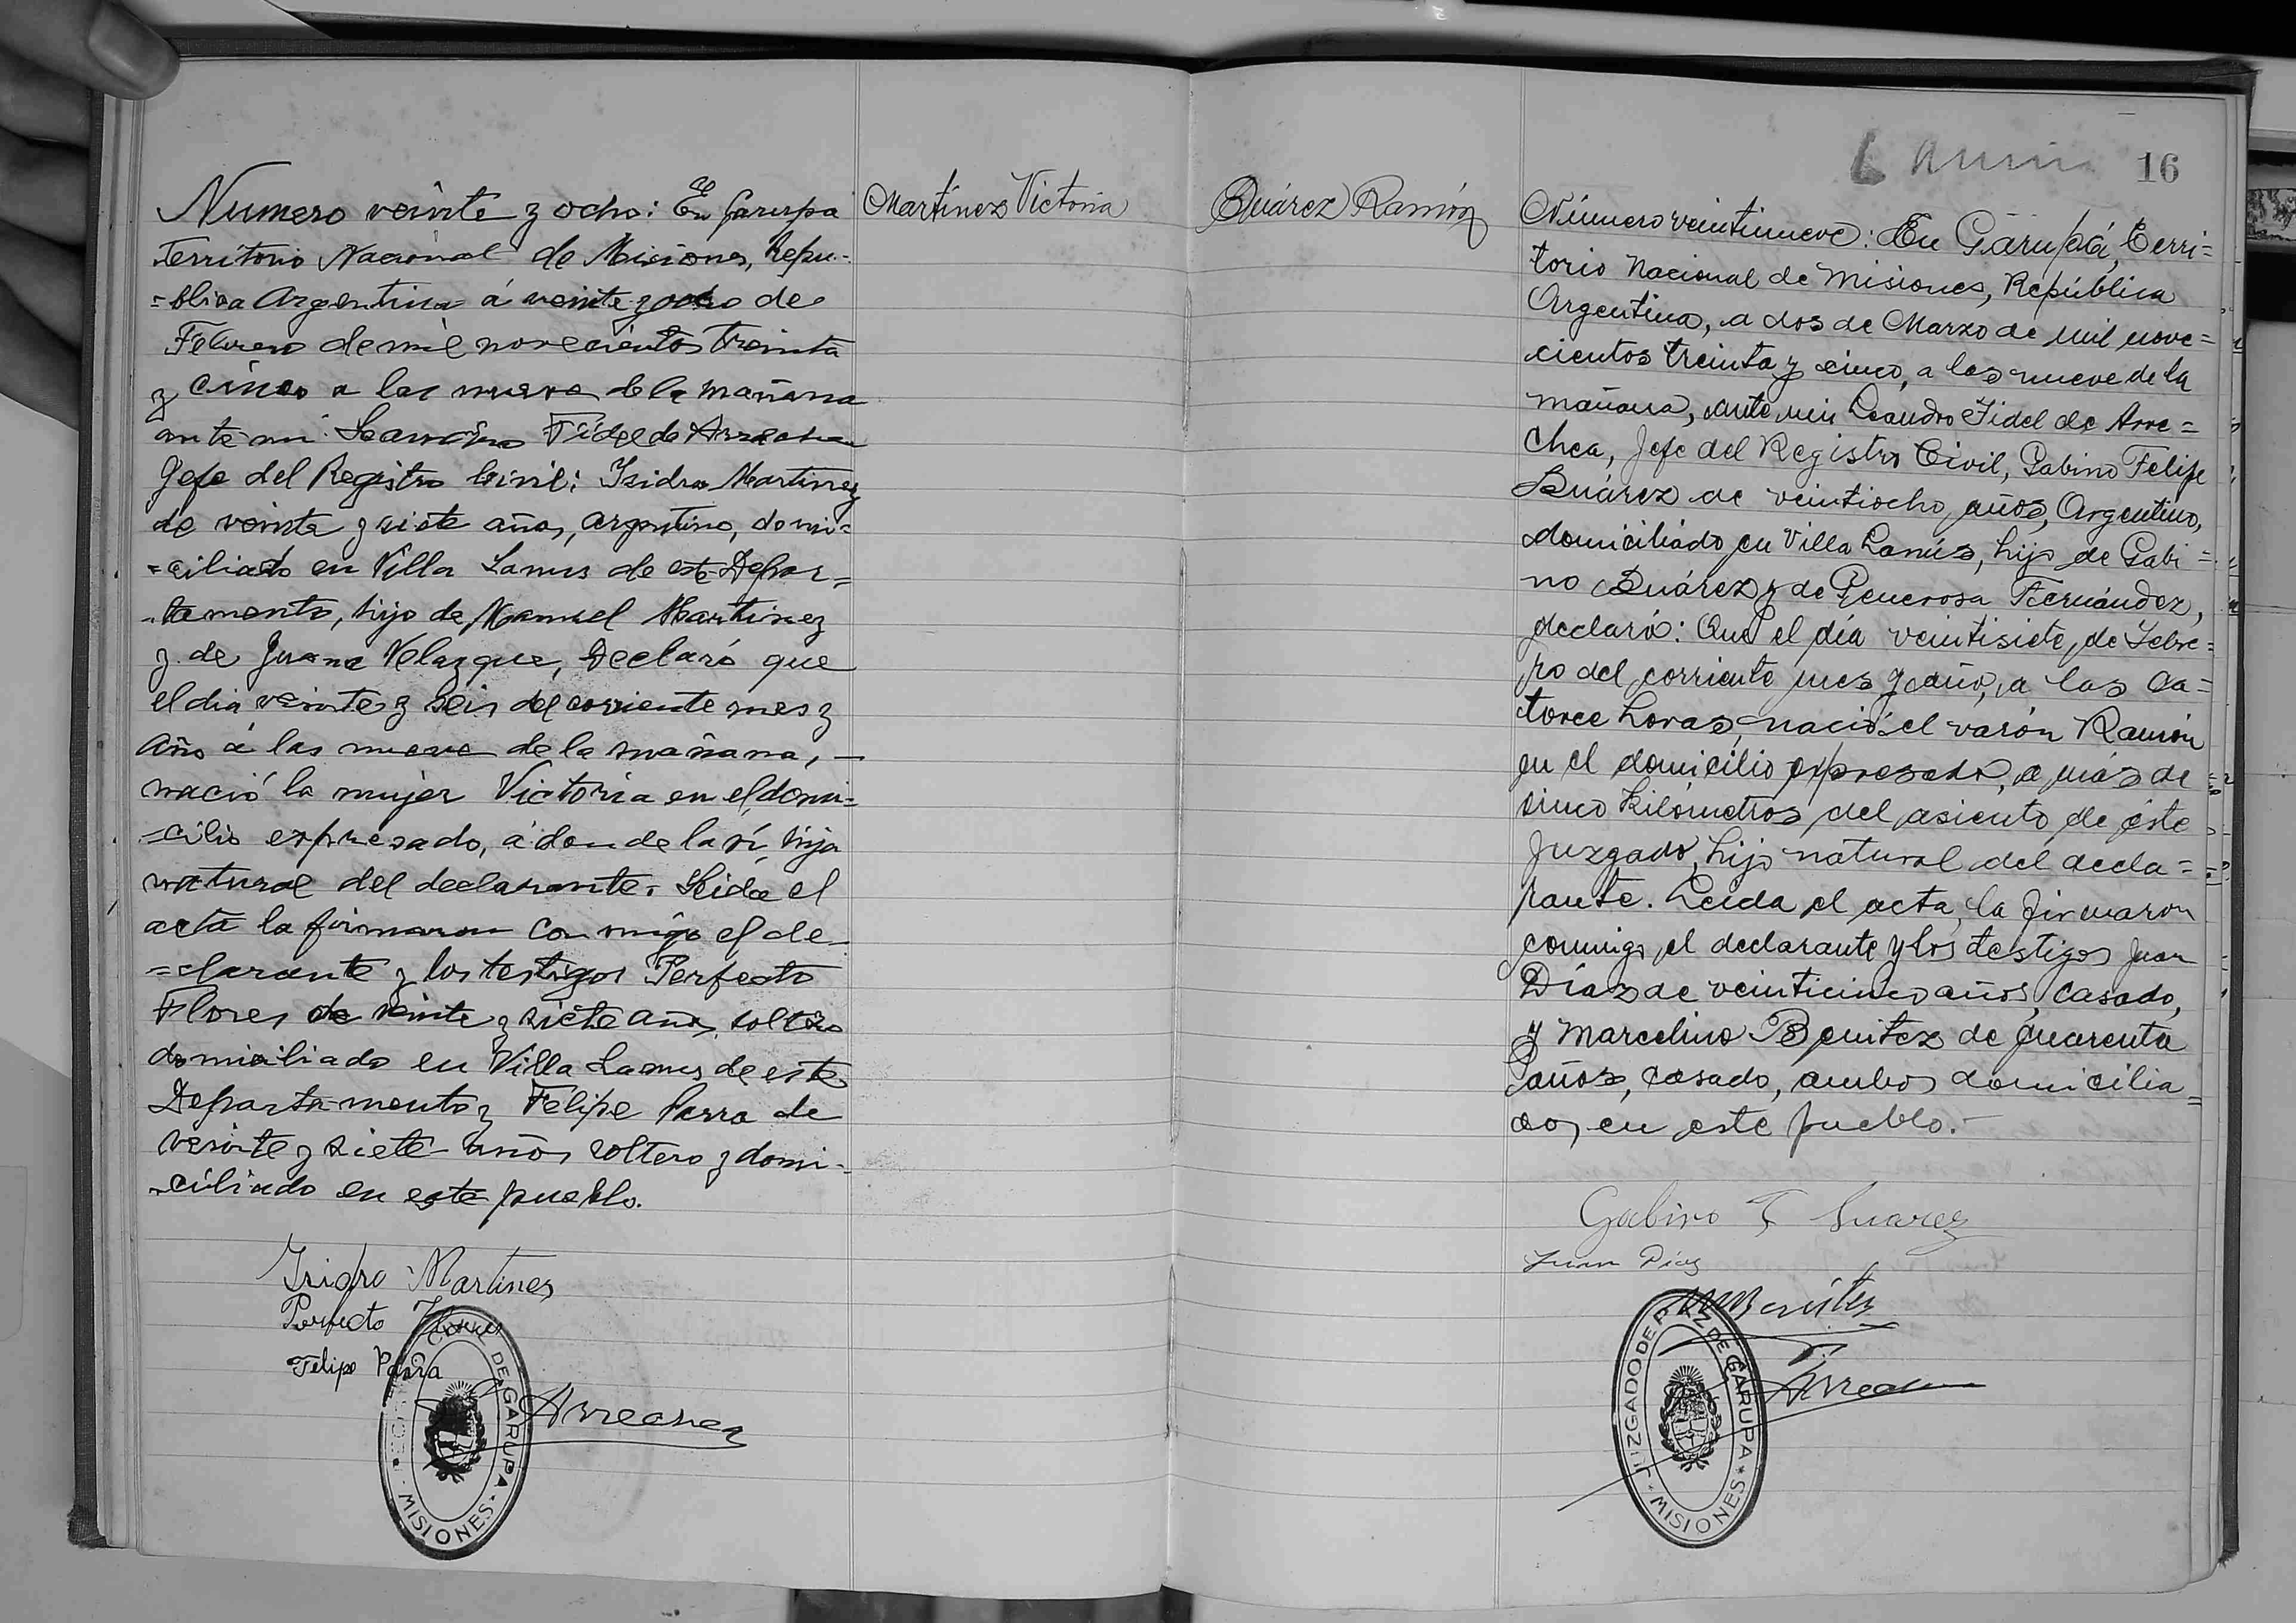 Numero veinte y ocho: En Garupa
Territorio Nacional de Misiones, Repu-
=blica Argentina á veinte y ocho de
Febrero de mil novecientos treinta
y cinco a las nueve de la mañana
ante mi Leandro Fidel de Arrechea
Gefe del Registro Civil: Isidro Martinez
de veinte y siete años, argentino, domi=
=ciliado en Villa Lanus de este Depar=
-tamento, hijo de Manuel Martinez
y de Juana Velazque, Declaró que
el dia veinte y seis del corriente mes y
Año á las nueve de la mañana, —
nació la mujer Victoria en el domi=
=cilio expresado, á donde la ví, hija
natural del declarante. Leida el
acta la firmaron con migo el de-
=clarante y los testigos Perfecto
Flores de veinte y siete años, soltero
domiciliado en Villa Lanus de este
Departamento y Felipe Parra de
veinte y siete años soltero y domi-
-ciliado en este pueblo.
Isidro Martines
Perfecto Flores
Felipe Parra
Arrechea
DE GARUPA
MISIONES
Martinez Victoria
Suárez Ramón
16
Número veintinueve: En Garupá, Terri=
torio Nacional de Misiones, República
Argentina, a dos de Marzo de mil nove=
cientos treinta y cinco, a las nueve de la
mañana, ante mi Leandro Fidel de Arre=
chea, Jefe del Registro Civil, Gabino Felipe
Suárez de veintiocho años, Argentino,
domiciliado en Villa Lanús, hijo de Gabi=
no Suárez y de Generosa Fernández,
declaró: Que el día veintisiete de Febre=
ro del corriente mes y año, a las ca=
torce horas, nació el varón Ramón
en el domicilio expresado, a más de
cinco kilómetros del asiento de éste
Juzgado, hijo natural del decla=
rante. Leida el acta, la firmaron
conmigo el declarante y los testigos Juan
Díaz de veinticinco años, casado,
y Marcelino Benitez de cuarenta
años, casado, ambos domicilia=
dos en este pueblo.-
Gabino F Suarez
Juan Diaz
M Benítez
Arrechea
JUZGADO DE PAZ DE GARUPA * MISIONES